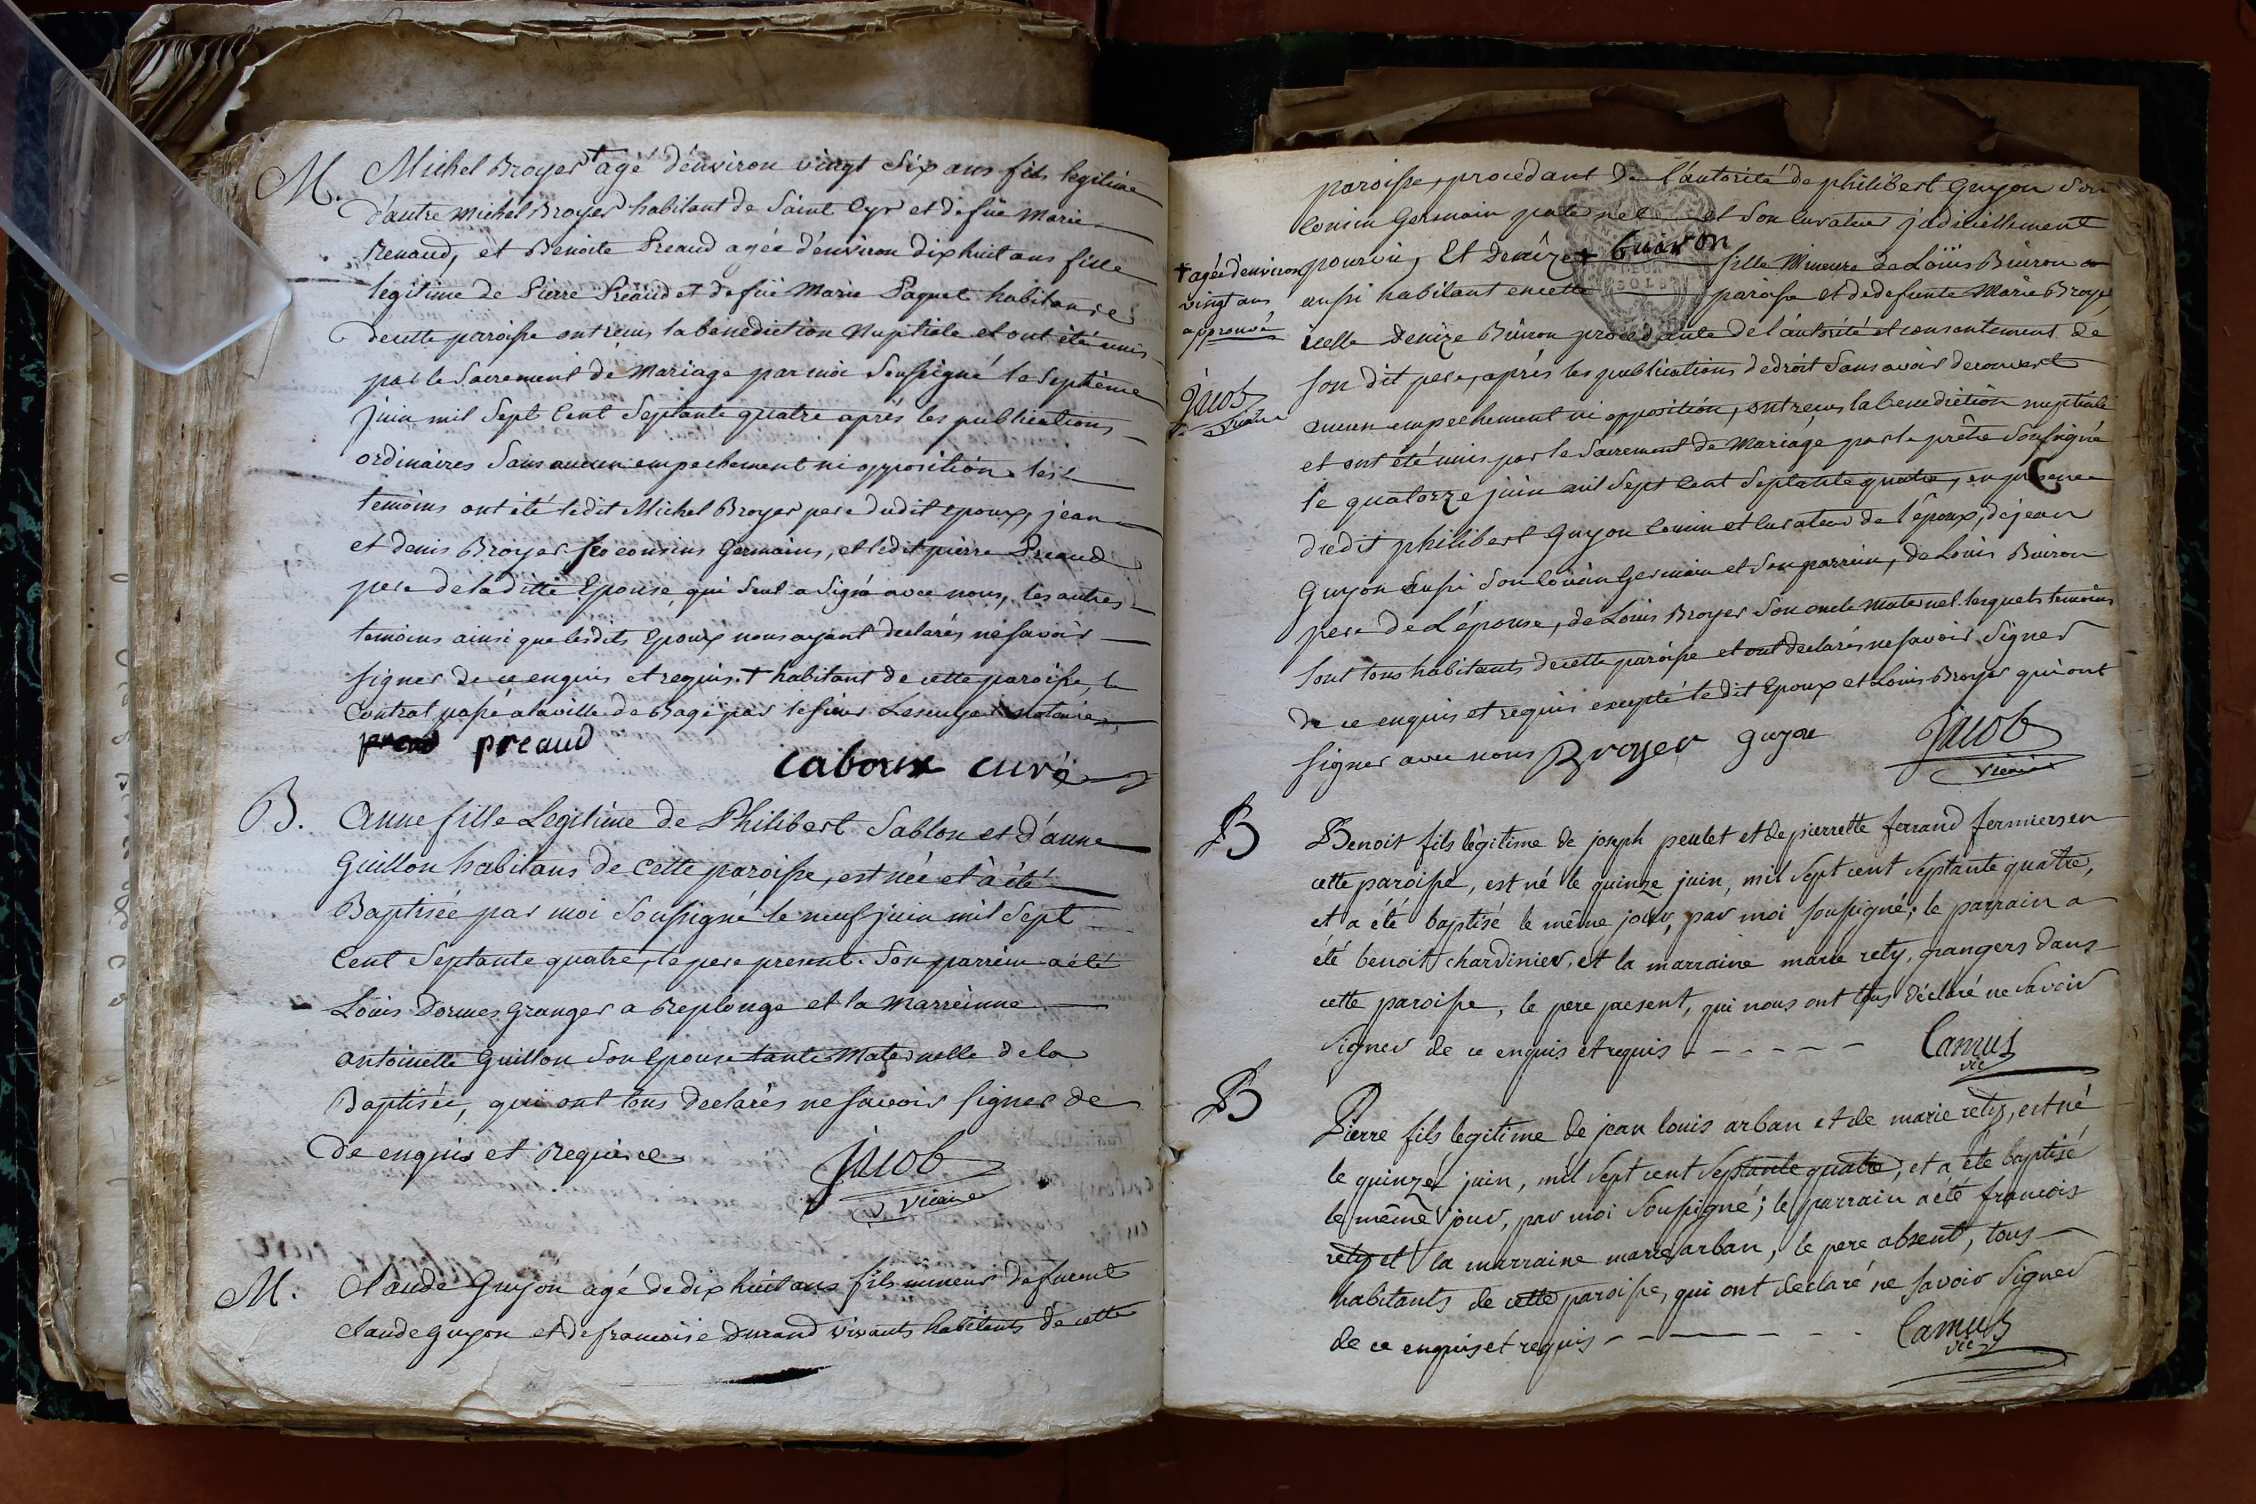 M. Michel Broyer + agé d'environ vingt six ans fils legitime
d'autre Michel Broyer habitant de Saint Cyr et de füe Marie
Renaud, et Benoite Preaud agée d'environ dix huit ans fille
legitime de Pierre Preaud et de füe Marie Paquet habitans
de cette paroisse ont reçus la benediction Nuptiale et ont été unis
par le Sacrement de Mariage par moi Soussigné le Septième
juin mil Sept Cent Septante quatre après les publications
ordinaires Sans aucun empechement ni opposition. les
temoins ont été ledit Michel Broyer pere dudit epoux, jean
et denis Broyer ses cousins Germains, et ledit pierre Preaud
pere de la ditte Epouse, qui Seul a Signé avec nous, les autres
temoins ainsi que lesdits Epoux nous ayant declarés ne savoir
signer de ce enquis et requis. + habitant de cette paroisse, le
Contrat passé a la ville de Bagé par le sieur notaire
preaud
caboux curé
B. Anne fille Legitime de Philibert Sablon et d'anne
Guillon habitans de cette paroisse, est née et à été
Baptisée par moi Soussigné le neuf juin mil Sept
Cent Septante quatre, le pere present. Son parrein a été
Loüis Dormes Granger a Replonge et la Marreinne
antoinette Guillon Son Epouse tante Maternelle de la
Baptisée, qui ont tous declarés ne savoir signer de
de enquis et Requis ce
jacob
vicaire
M. Claude Guyon agé de dix huit ans fils mineur defuent
claude guyon et de francoise Durand vivants habitants de cette
paroisse, procedant de l'autorité de philibert Guyon Son
Cousin Germain paternel et Son Curateur judiciellement
pourvü, Et Denize + Buiron fille Mineure de Loüis Buiron
aussi habitant en cette paroisse et de defunte Marie Broyer,
+ agée d'environ
vingt ans
approuvé
jacob
vicaire
icelle Denize Buiron procedante de l'autorité et consentement de
son dit pere, après les publications de droit Sans avoir decouvert
aucun empechement ni opposition, ont reçus la benediction nuptiale
et ont été unis par le Sacrement de Mariage par le prêtre Soussigné
le quatorze juin mil Sept Cent Septante quatre, en presence
dudit philibert Guyon Cousin et Curateur de l'époux, de jean
Guyon aussi Son Cousin Germain et Son parrein, de Louis Buiron
pere de L'épouse, de Loüis Broyer Son oncle Maternel lesquels temoins
Sont tous habitants de cette paroisse et ont declarés ne savoir Signer
de ce enquis et requis excepté ledit Epoux et Louis Broyer qui ont
signer avec nous Broyer guyon
jacob
vicaire
B Benoit fils légitime de joseph peulet et de pierrette ferrand fermiers en
cette paroisse, est né le quinze juin, mil Sept cent Septante quatre,
et a été baptisé le même jour, par moi soussigné; le parrain a
été benoit chardinier, et la marraine marie rety, grangers dans
cette paroisse, le pere present, qui nous ont tous déclaré ne savoir
signer de ce enquis et requis - - - - - -
Camus
vic
B Pierre fils legitime de jean louis arban et de marie rety, est né
le quinze juin, mil sept cent septante quatre, et a été baptisé
le même jour, par moi Soussigné; le parrain a été francois
rety et la marraine marie arban, le pere absent, tous
habitants de cette paroisse, qui ont declaré ne savoir Signer
de ce enquis et requis - - - - - - -
Camus
vic